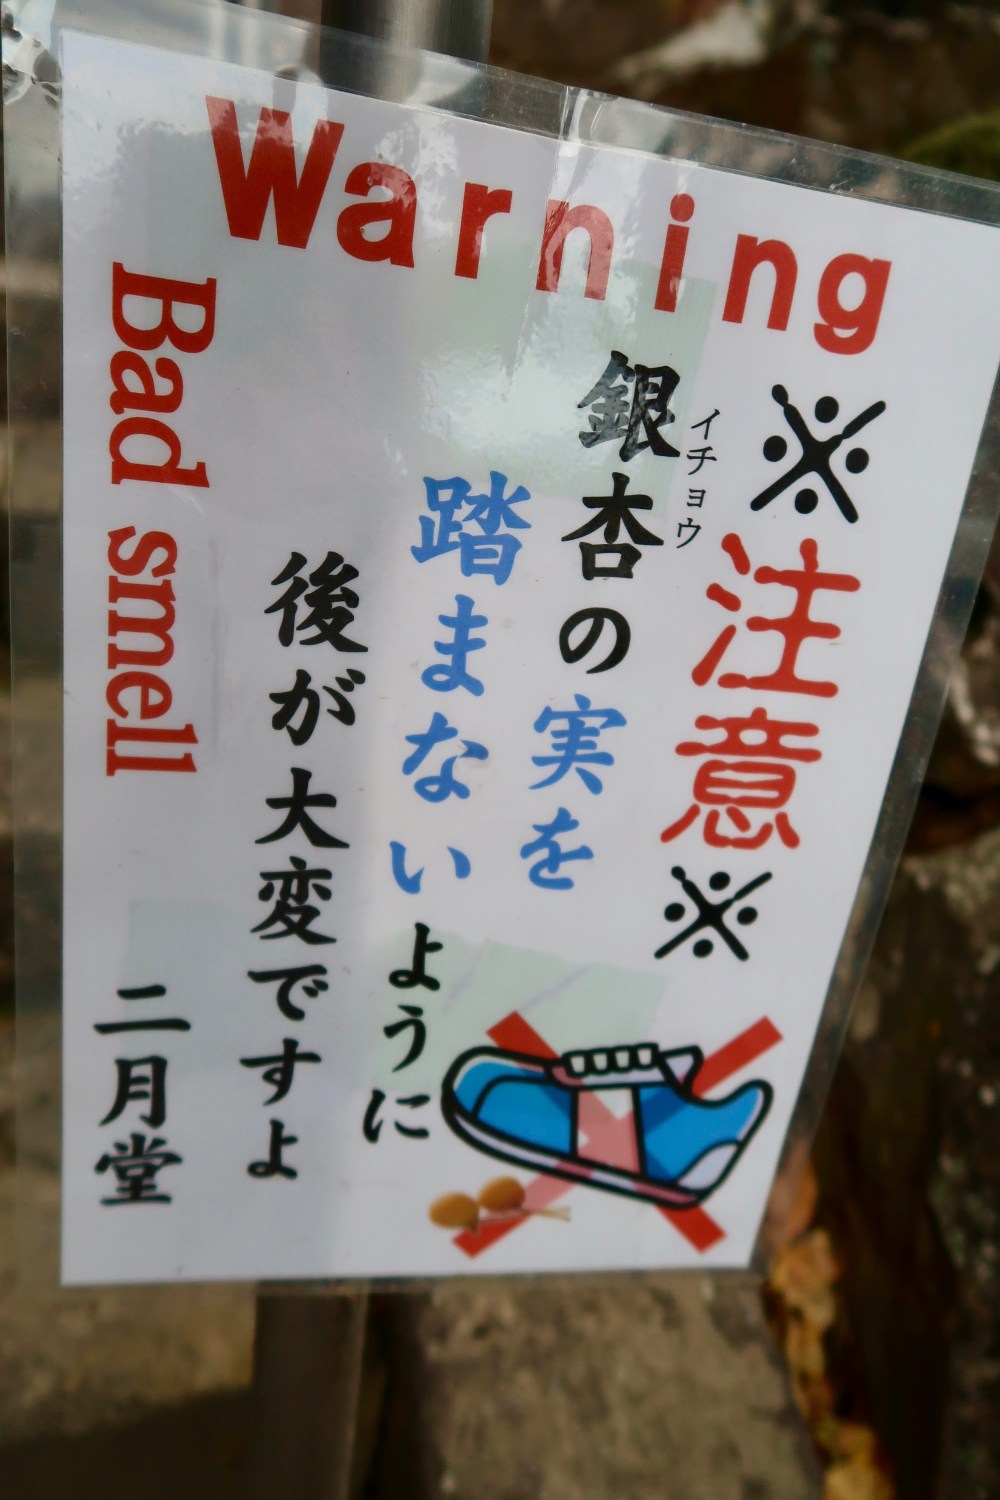 Warning
※注意※
銀杏の実を
イチョウ
踏まないように
後が大変ですよ
二月堂
Bad smell